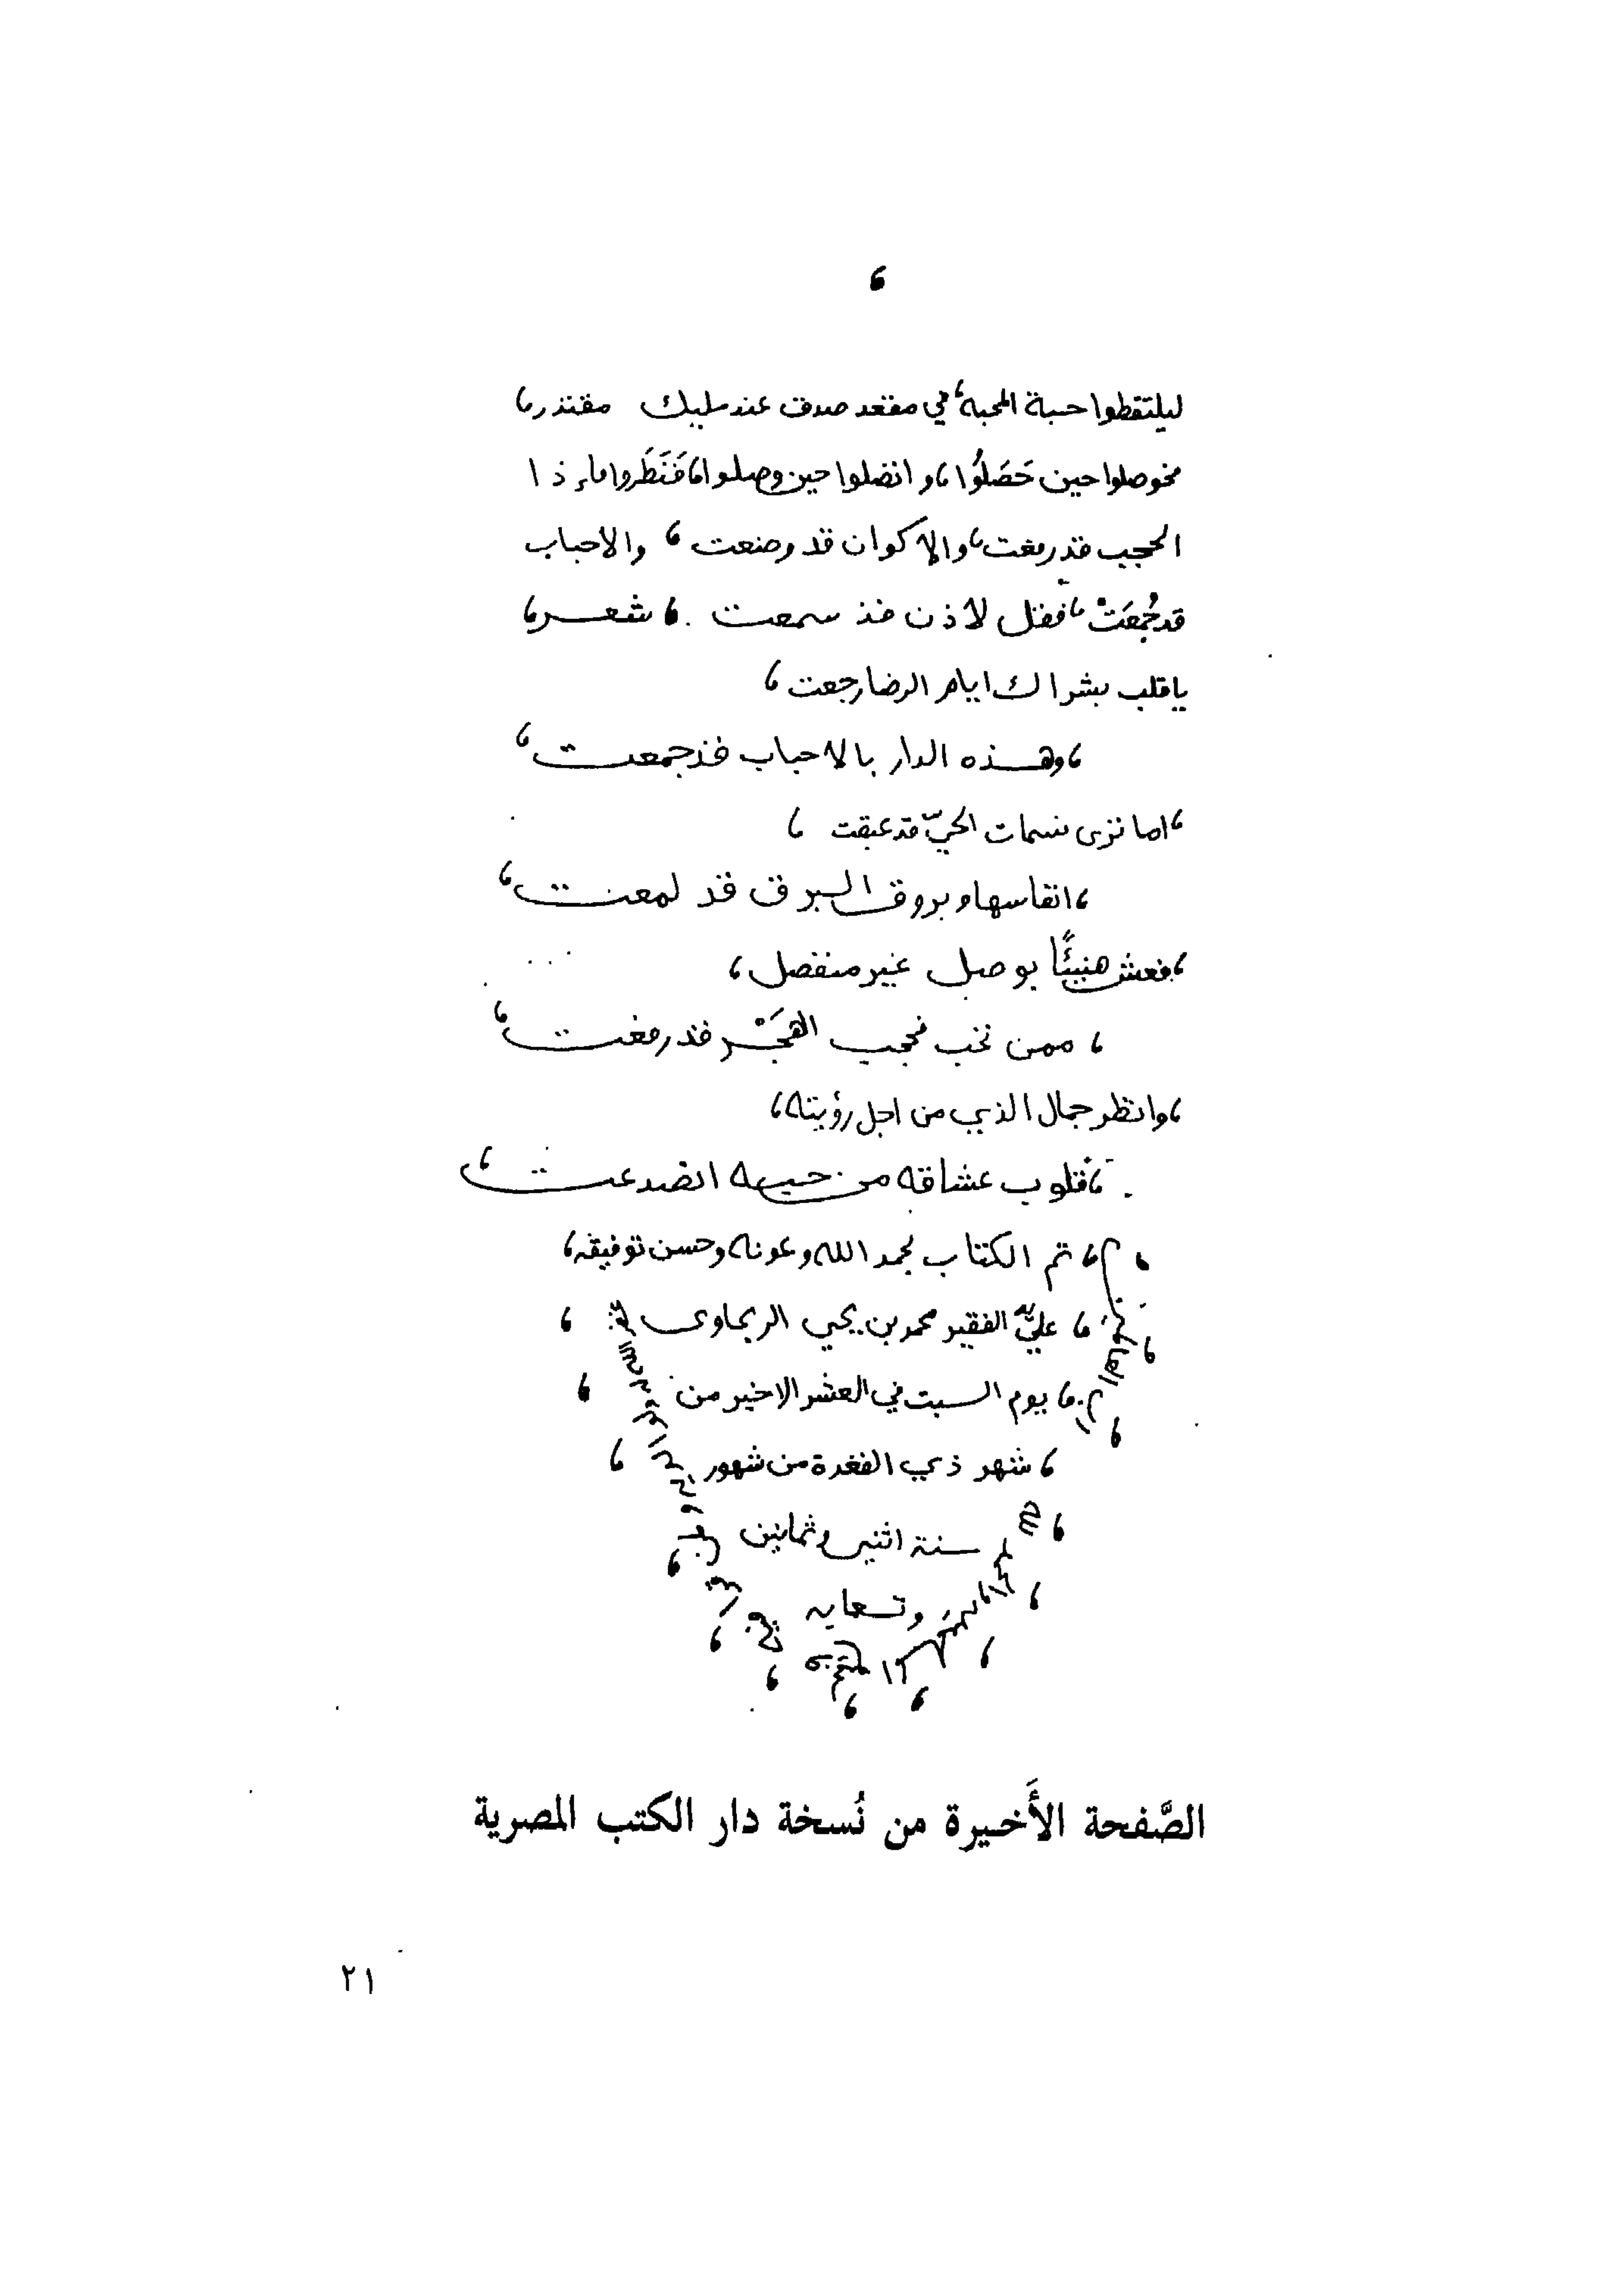 ليلتقطوا حبة المحبة، في مقعد صدق عند مليك مقتدر،
فحوصلوا حين حَصَلُوا، واتصلوا حين وصلوا، فَنَظَروا فاذا
الحجب قد رفعت، والاكوان قد وضعت، والاحباب
قد جُمِعَتْ، فقل لاذن قد سمعت . ، شعر،
يا قلب بشراك ايام الرضا رجعت ،
، وهذه الدار بالاحباب قد جمعت ،
، اما ترى نسمات الحيّ قد عبقت ،
، انفاسها وبروق البرق قد لمعت ،
، فعش هنيئًا بوصل غير منفصل ،
، ممن تحب فحجب الهَجْر قد رفعت ،
، وانظر جمال الذي من اجل رؤيته ،
، قلوب عشاقه من حبه انصدعت ،
، تم الكتاب بحمد الله وعونه وحسن توفيقه ،
، علي يد الفقير محمد بن يحيي الريحاوى ،
، يوم السبت في العشر الاخير من ،
، شهر ذي القعدة من شهور ،
سنة اثنين وثمانين
وتسعمايه
الصَّفحة الأَخيرة من نُسخة دار الكتب المصرية
٢١